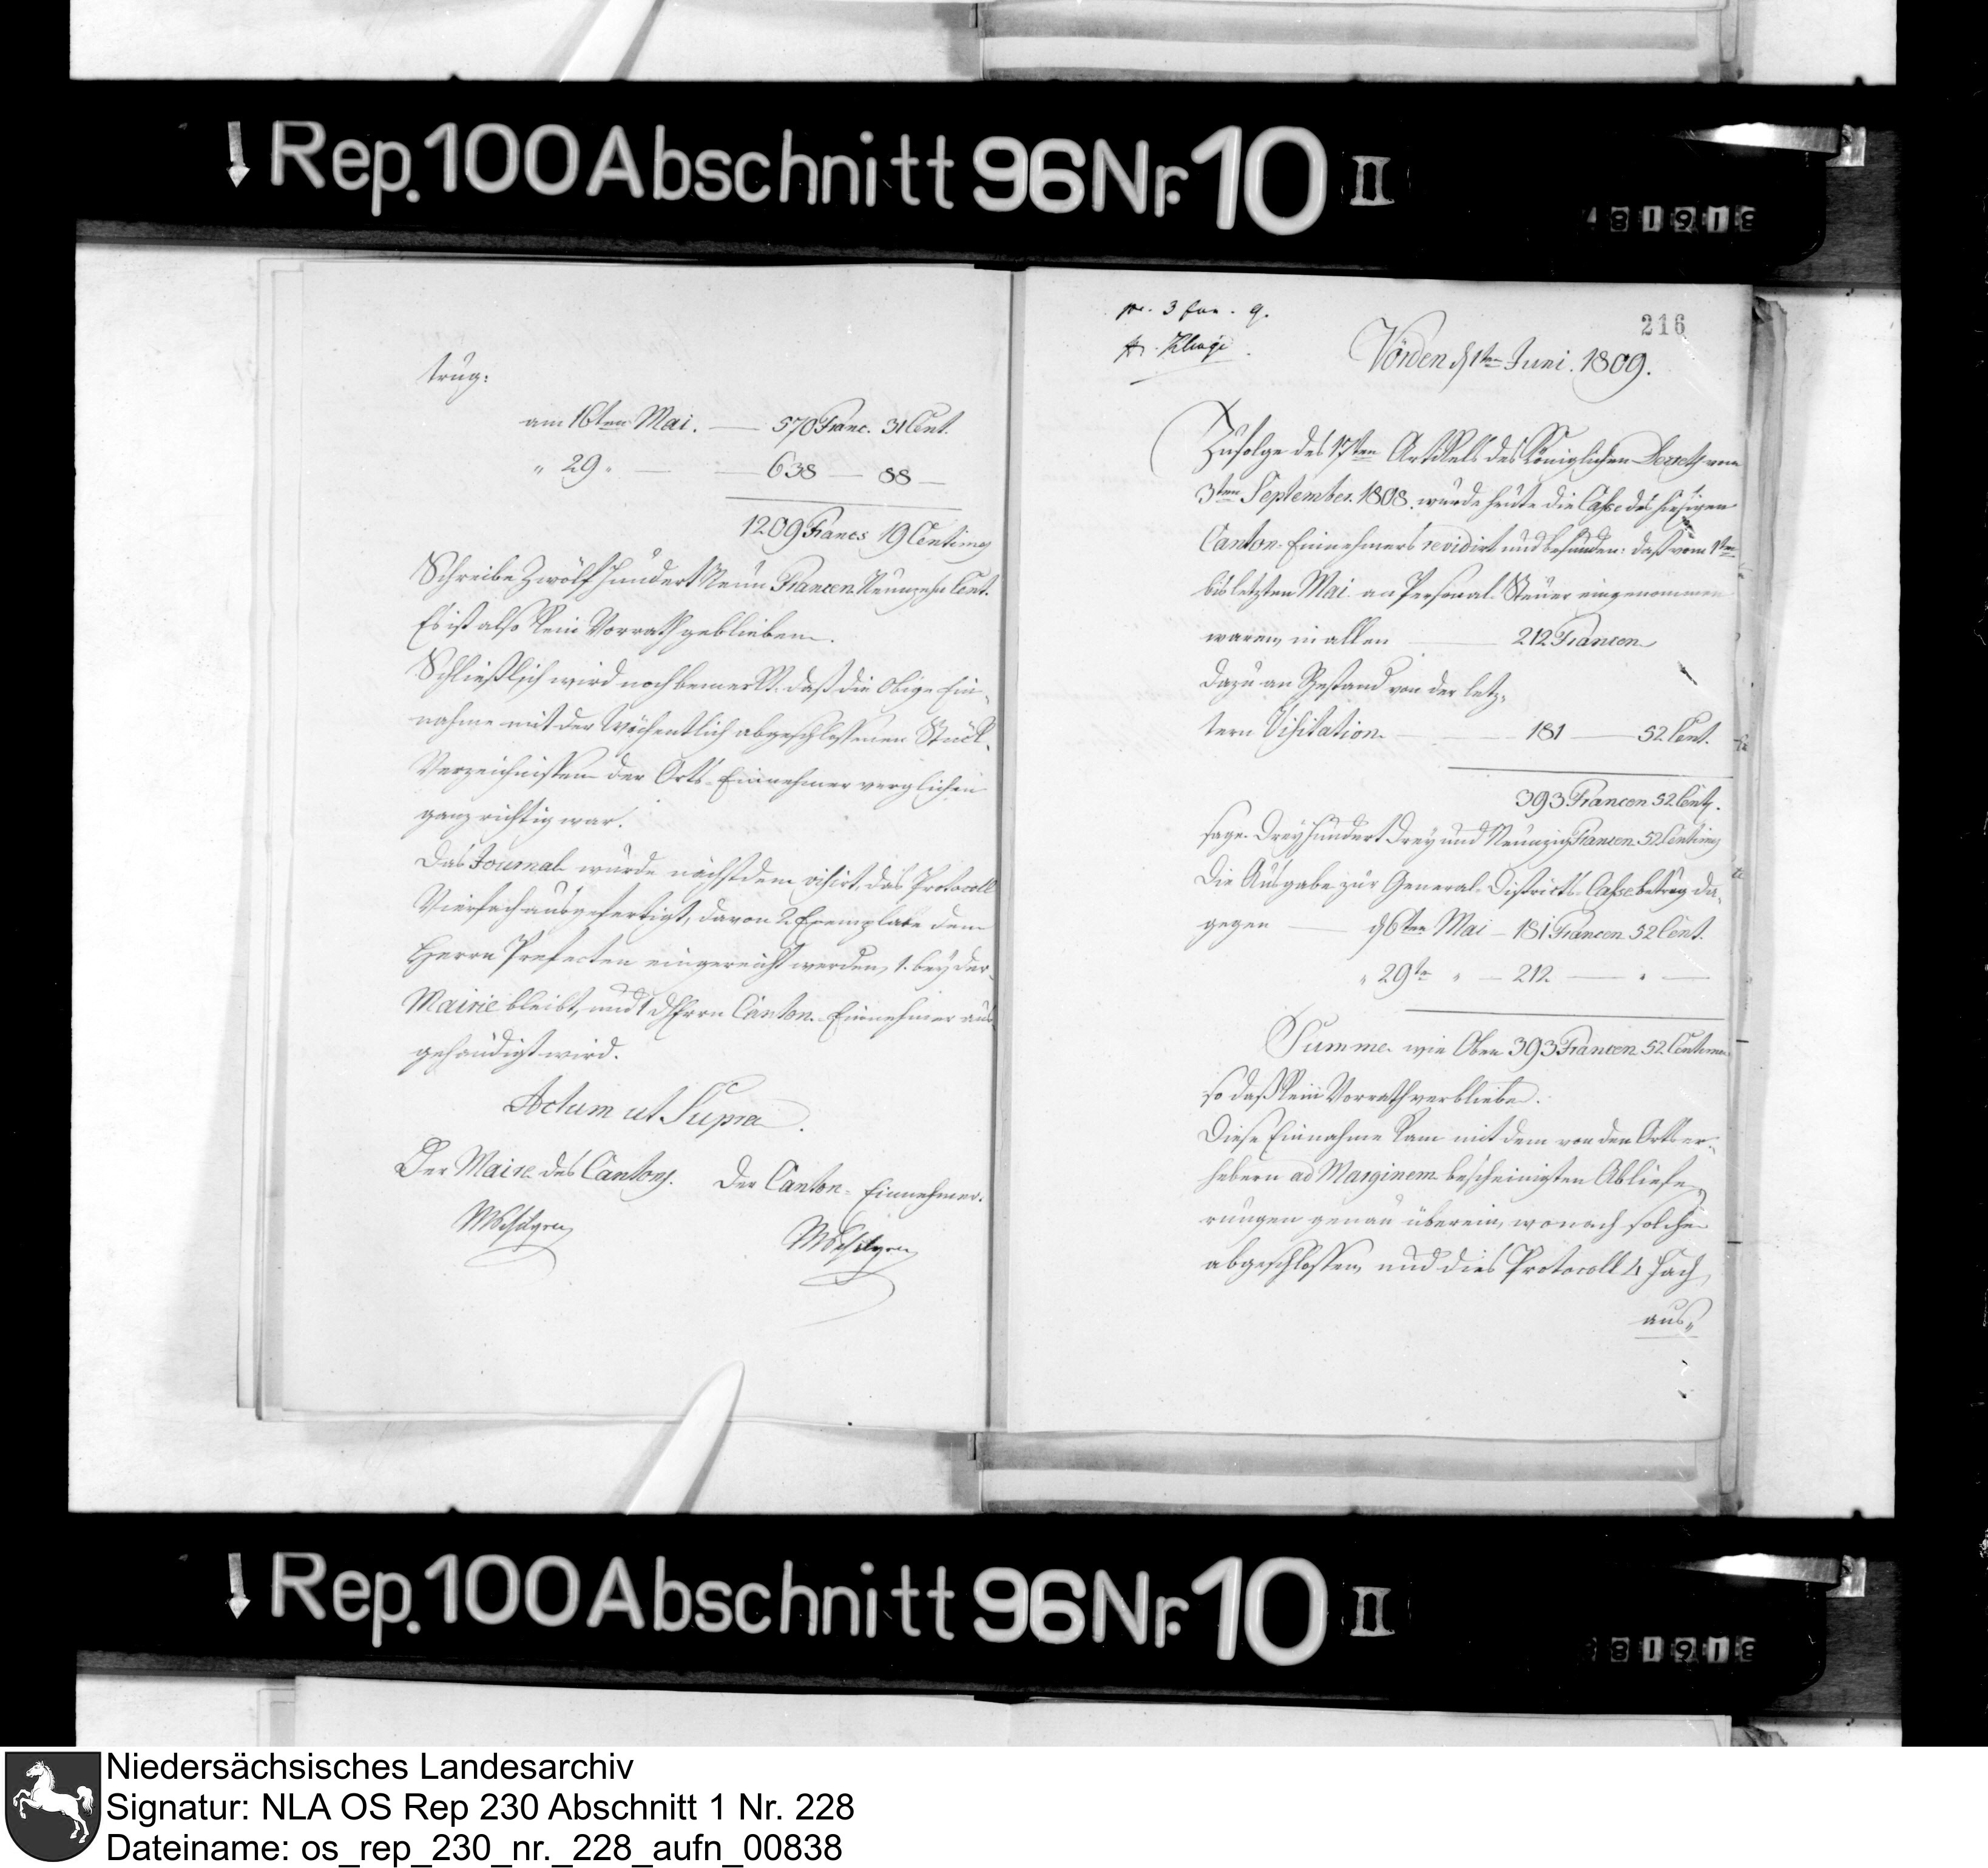 Rep. 100 Abschnitt 96 Nr. 10 II
trug:
am 16ten Mai. — 570 Franc. 31 Cent.
" 29 " — 638 — 88 —
1209 Francs 19 Centimes
Schreibe Zwölf Hundert Neun Francen Neunzehn Cent.
Es ist also kein Vorrath geblieben.
Schließlich wird noch bemerkt, daß die obige Ein-
nahme mit der Wöchentlich abgeschlossenen Stück-
Verzeichnissen der Orts-Einnehmer verglichen
ganz richtig war.
Das Journal wurde nächstdem visirt, das Protocoll
Vierfach ausgefertigt, davon 2 Exemplare dem
Herrn Prefecten eingereicht werden, 1. bey der
Mairie bleibt, und 1 d Herrn Canton-Einnehmer aus-
gehändigt wird.
Actum ut Supra.
Der Maire des Cantons. Der Canton-Einnehmer.
216
pr. 3 Jun. 9.
Vörden d 1ten Juni. 1809.
Zufolge des 17ten Artikels des Königlichen Decrets vom
3ten September 1808. wurde heute die Casse des hiesigen
Canton-Einnehmers revidirt und befunden: daß vom 1ten
bis letzten Mai an Personal-Steuer eingenommen
waren, in allen — 212 Francen
Dazu an Bestand von der letz-
tern Visitation — 181 — 52 Cent.
393 Francen 52 Cent.
sage Dreyhundert Drey und Neunzig Francen 52 Centimes
Die Ausgabe zur General-Districts-Casse betrug da-
gegen — d 6ten Mai — 181 Francen 52 Cent.
" 29te " — 212 — " —
Summe wie Oben 393 Francen 52 Centimen
so daß kein Vorrath verbliebe.
Diese Einnahme kam mit dem von den Ortser-
hebern ad Marginem bescheinigten Abliefe-
rungen genau überein, wonach solche
abgeschlossen, und dies Protocoll 4 fach
aus-
Rep. 100 Abschnitt 96 Nr. 10 II
Niedersächsisches Landesarchiv
Signatur: NLA OS Rep 230 Abschnitt 1 Nr. 228
Dateiname: os_rep_230_nr._228_aufn_00838